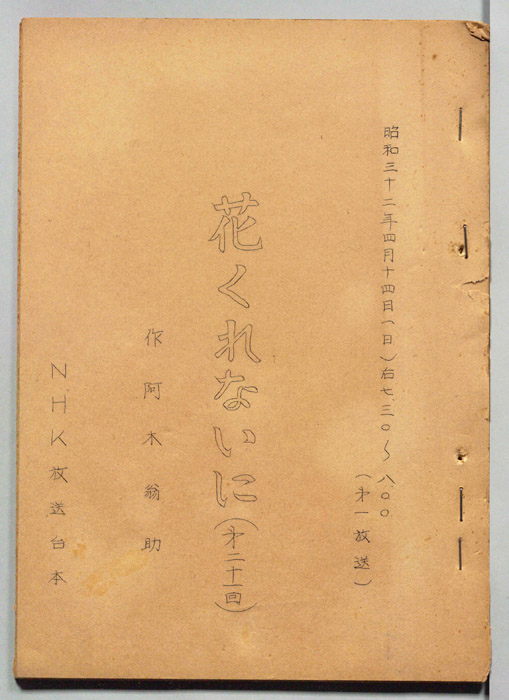 昭和三十二年四月十四日(日)后七.三〇〜八.〇〇
(才一放送)
花くれないに(才二十一回)
作 阿木翁助
N.H.K 放送台本